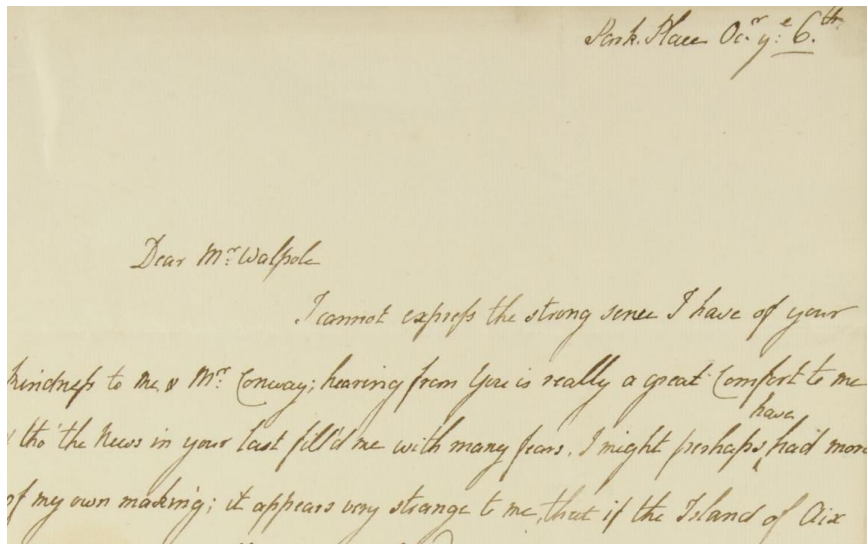 Park. Place Ocr. ye: 6.th
Dear Mr. Walpole
I cannot express the strong sence I have of your
kindness to me & Mr. Conway; hearing from you is really a great Comfort to me
have
tho' the News in your last fill'd me with many fears. I might perhaps had more
of my own making; it appears very strange to me, that if the Island of Aix